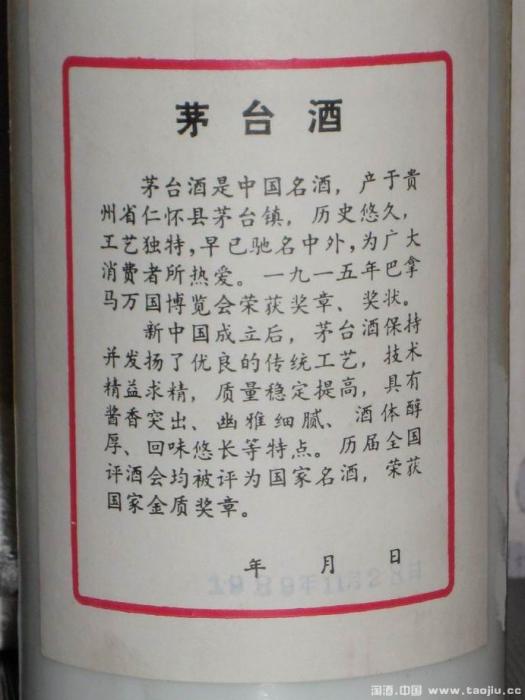 茅台酒
茅台酒是中国名酒，产于贵
州省仁怀县茅台镇，历史悠久，
工艺独特，早已驰名中外，为广大
消费者所热爱。一九一五年巴拿
马万国博览会荣获奖章、奖状。
新中国成立后，茅台酒保持
并发扬了优良的传统工艺，技术
精益求精，质量稳定提高，具有
酱香突出、幽雅细腻、酒体醇
厚、回味悠长等特点。历届全国
评酒会均被评为国家名酒，荣获
国家金质奖章。
年 月 日
1989年11月28日
淘酒.中国 www.taojiu.cc